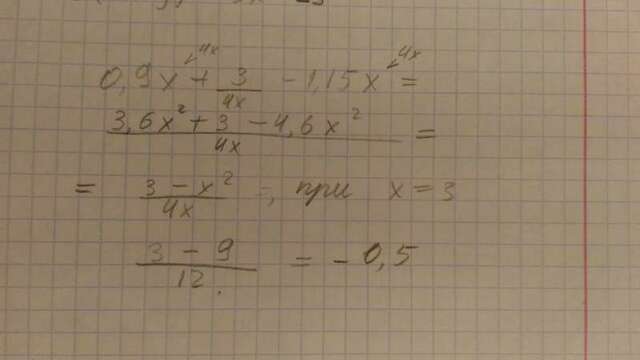 0,9x + 3/4x - 1,15x =
4x 4x
3,6x² + 3 - 4,6x² / 4x =
= 3 - x² / 4x =, при x = 3
3 - 9 / 12 = - 0,5